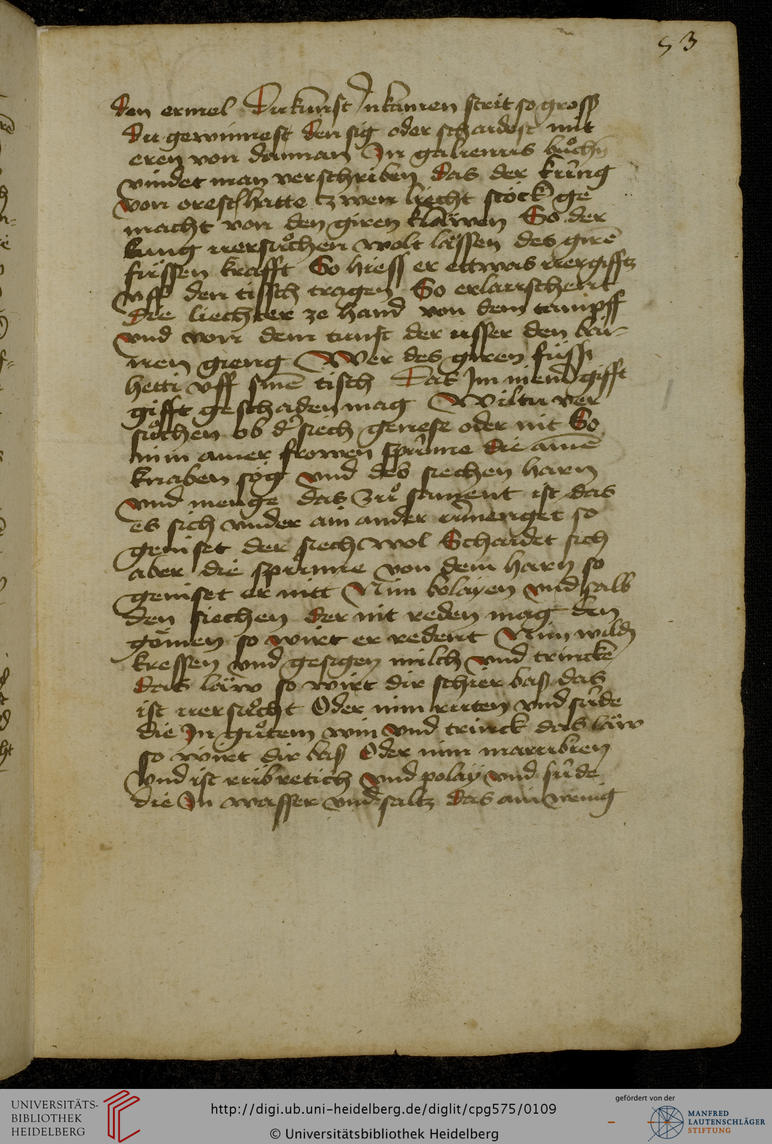 53
den ermel Du kumst In kainen strit so gross
du gewinnest den sig oder schaidest mit
eren von dannan In galienus bůch
vindet man verschriben das der kúng
von hatte zwen liecht stöck ge
macht von den giren klawen So der
kung versůchen wolt lässen des girē
füssen krafft So hiess er ettwas vergifftz
vff den tissch tragen So erlasschent
die liechter ze hand von dem tampff
vnd von dem tunst der usser den
nen gieng Wer des giren füss
hetti vff sinē tisch Das Im niend gifft
gifft geschaden mag Wiltu ver
sůchen ob d' siech genese oder nit So
nim ainer frowen spúnne die ainē
knaben sög vnd des siechen harn
vnd menge das zů sament ist das
es sich vnder ain ander menget so
geniset der siech wol Schaidet sich
aber die spúnne von dem harn so
geniset er nitt Nim bolayen vnd salb
den siechen der nit reden mag den
gömen so wirt er redent Nim wild
kressen vnd gesigen milch vnd trinckē
das läw so wirt dir schier bas das
ist versůcht Oder nim rutten vnd súde
die In gůtem win vnd trinck das läw
so wirt dir bas Oder nim marubien
vnd ist retich vnd polay vnd súde
die In wasser vnd saltz das ain wenig
UNIVERSITÄTS-
BIBLIOTHEK
HEIDELBERG
http://digi.ub.uni-heidelberg.de/diglit/cpg575/0109
© Universitätsbibliothek Heidelberg
gefördert von der
MANFRED
LAUTENSCHLÄGER
STIFTUNG